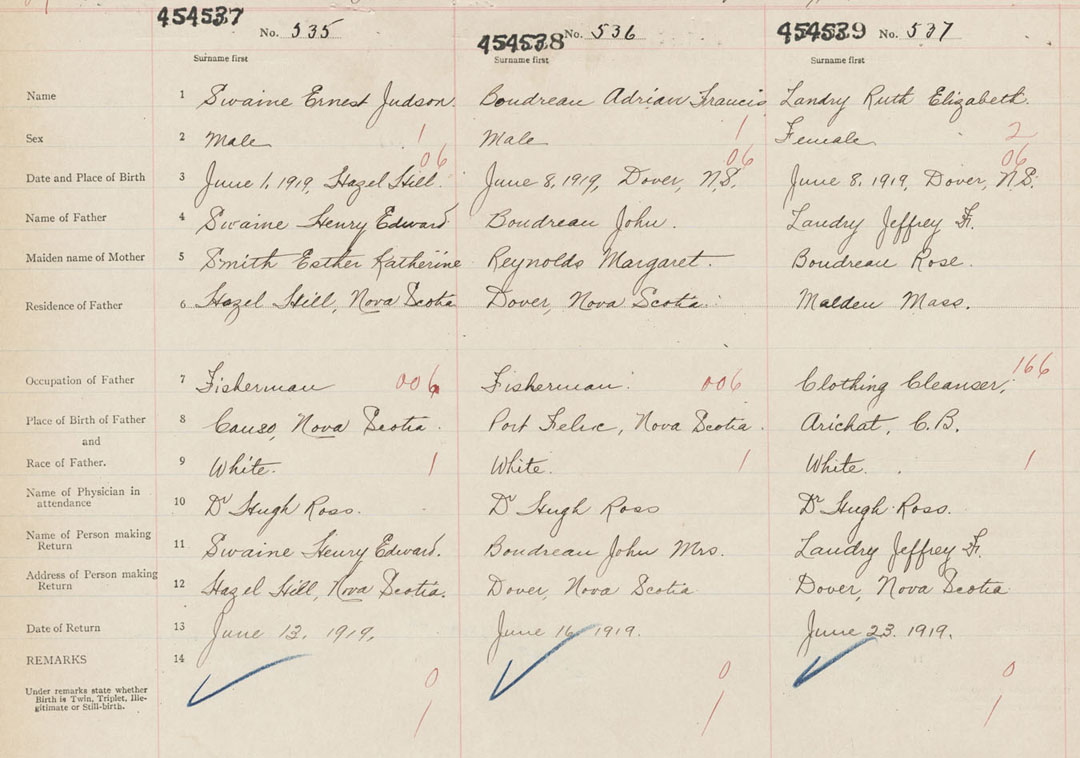 454537 No. 535 454538 No. 536 454539 No. 537
Surname first Surname first Surname first
Name 1 Swaine Ernest Judson. Boudreau Adrian Francis Landry Ruth Elizabeth.
Sex 2 Male 1 Male 1 Female 2
06 06 06
Date and Place of Birth 3 June 1, 1919, Hazel Hill. June 8, 1919, Dover, N.S. June 8, 1919, Dover, N.S.
Name of Father 4 Swaine Henry Edward Boudreau John. Landry Jeffrey Fr.
Maiden name of Mother 5 Smith Esther Katherine Reynolds Margaret. Boudreau Rose.
Residence of Father 6 Hazel Hill, Nova Scotia Dover, Nova Scotia. Malden Mass.
Occupation of Father 7 Fisherman 006 Fisherman. 006 Clothing Cleanser, 166
Place of Birth of Father 8 Canso, Nova Scotia. Port Felix, Nova Scotia. Arichat, C.B.
and
Race of Father. 9 White. 1 White. 1 White. 1
Name of Physician in
attendance 10 Dr Hugh Ross. Dr Hugh Ross Dr Hugh Ross.
Name of Person making
Return 11 Swaine Henry Edward. Boudreau John Mrs. Landry Jeffrey Fr.
Address of Person making
Return 12 Hazel Hill, Nova Scotia. Dover, Nova Scotia Dover, Nova Scotia
Date of Return 13 June 13, 1919. June 16, 1919. June 23. 1919.
REMARKS 14
Under remarks state whether
Birth is Twin, Triplet, Ille-
gitimate or Still-birth.
0 0 0
1 1 1